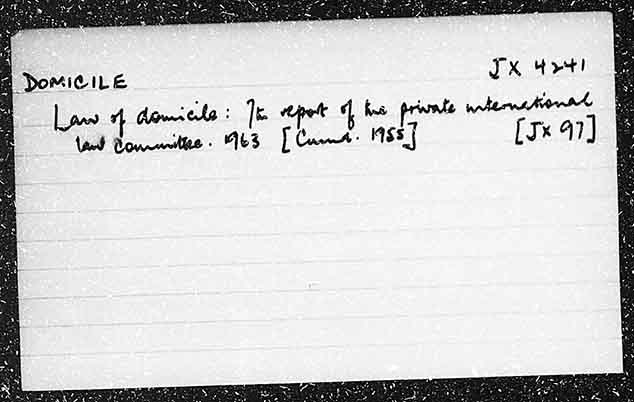 DOMICILE JX 4241
Law of domicile: 7th report of the private international
law committee. 1963 [Cmnd. 1955] [JX 97]